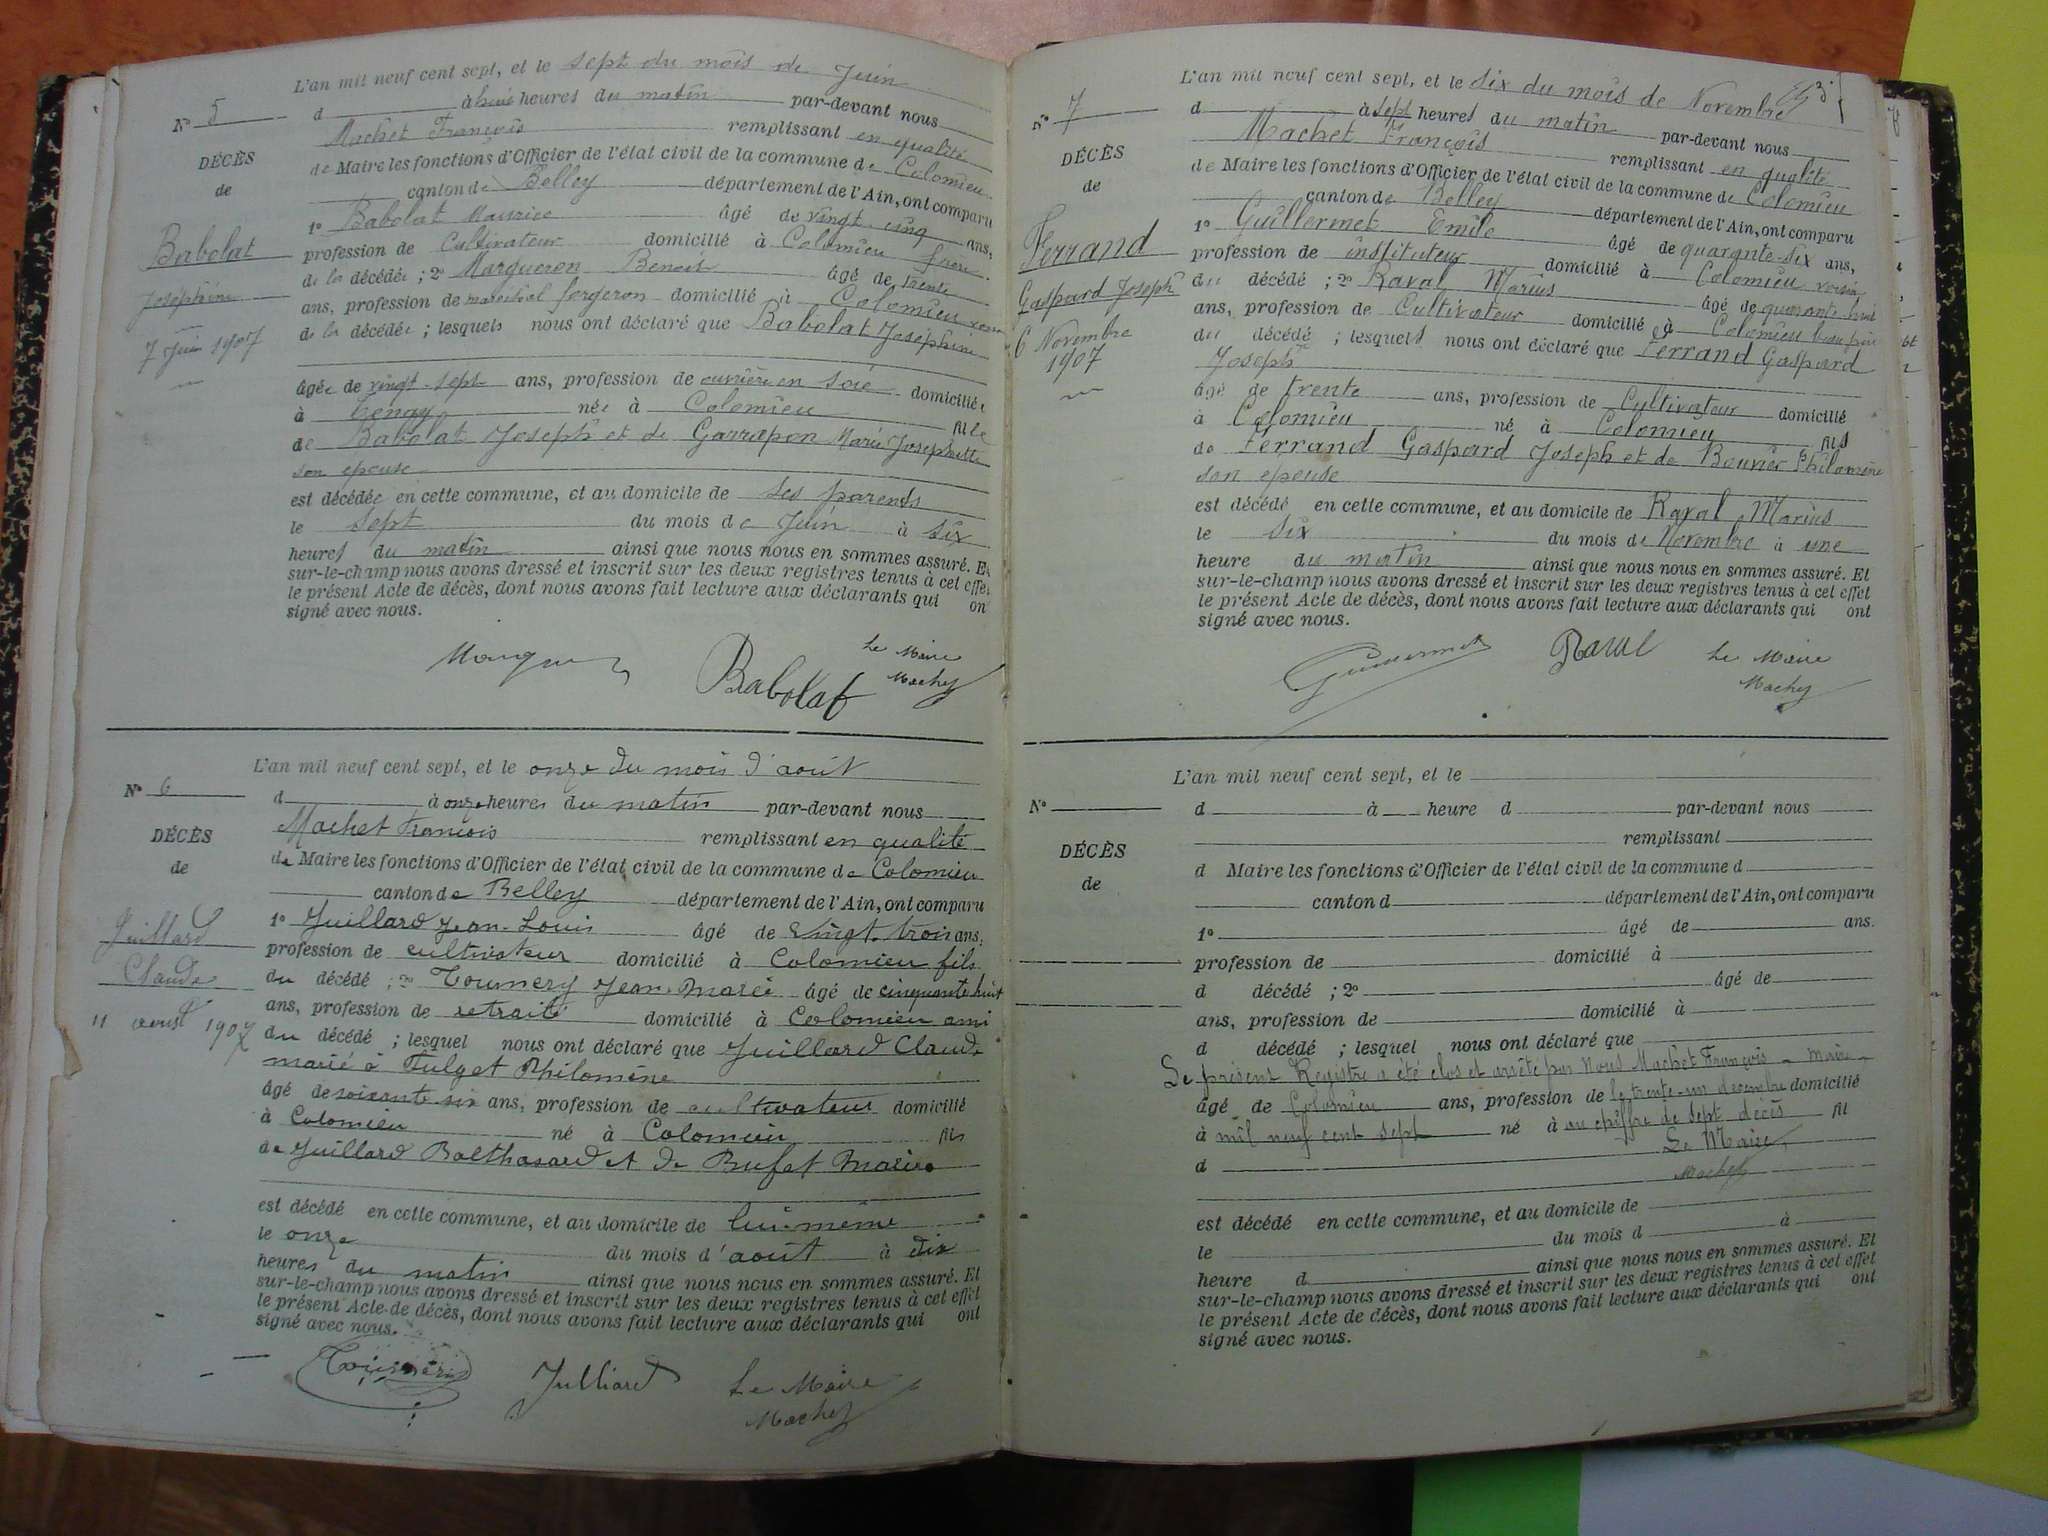 L'an mil neuf cent sept, et le sept du mois de Juin
N° 5
d à huit heures du matin par-devant nous
Machet François remplissant en qualité
DÉCÈS
de Maire les fonctions d'Officier de l'état civil de la commune de Colomieu
de
canton de Belley département de l'Ain, ont comparu
1° Babolat Maurice âgé de vingt-cinq ans,
Babolat
profession de Cultivateur domicilié à Colomieu frère
de la décédée ; 2° Margueron Benoit âgé de trente
Joséphine
ans, profession de maréchal forgeron domicilié à Colomieu
de la décédée ; lesquels nous ont déclaré que Babolat Joséphine
7 Juin 1907
âgée de vingt-sept ans, profession de ouvrière en soie domiciliée
à née à Colomieu fille
de Babolat Joseph et de Garrapon Marie Josephette
son epouse
est décédée en cette commune, et au domicile de ses parents
le sept du mois de Juin à six
heures du matin ainsi que nous nous en sommes assuré. Et
sur-le-champ nous avons dressé et inscrit sur les deux registres tenus à cet effet
le présent Acte de décès, dont nous avons fait lecture aux déclarants qui ont
signé avec nous.
Babolat
Le Maire
Machet
L'an mil neuf cent sept, et le onze du mois d'août
N° 6
d à onze heures du matin par-devant nous
Machet François remplissant en qualité
DÉCÈS
de Maire les fonctions d'Officier de l'état civil de la commune de Colomieu
de
canton de Belley département de l'Ain, ont comparu
1° Juillard Jean-Louis âgé de vingt-trois ans,
Juillard
profession de cultivateur domicilié à Colomieu fils
Claude
du décédé ; 2° Tournery Jean-Marie âgé de cinquante huit
ans, profession de retraité domicilié à Colomieu ami
11 aoust 1907
du décédé ; lesquel nous ont déclaré que Juillard Claude
marié à Fulget Philomène
âgé de soixante six ans, profession de cultivateur domicilié
à Colomieu né à Colomieu fils
de Juillard Balthasard et de Bufet Marie
est décédé en cette commune, et au domicile de lui-même
le onze du mois d'août à dix
heures du matin ainsi que nous nous en sommes assuré. Et
sur-le-champ nous avons dressé et inscrit sur les deux registres tenus à cet effet
le présent Acte de décès, dont nous avons fait lecture aux déclarants qui ont
signé avec nous.
Julliard
Le Maire
Machet
L'an mil neuf cent sept, et le six du mois de Novembre
N° 7
d à sept heures du matin par-devant nous
Machet François remplissant en qualité
DÉCÈS
de Maire les fonctions d'Officier de l'état civil de la commune de Colomieu
de
canton de Belley département de l'Ain, ont comparu
1° Guillermet Emile âgé de quarante-six ans,
Ferrand
profession de instituteur domicilié à Colomieu voisin
Gaspard Joseph
du décédé ; 2° Raval Marius âgé de quarante-huit
ans, profession de Cultivateur domicilié à Colomieu beau père
6 Novembre
1907
du décédé ; lesquels nous ont déclaré que Ferrand Gaspard
Joseph
âgé de trente ans, profession de Cultivateur domicilié
à Colomieu né à Colomieu fils
de Ferrand Gaspard Joseph et de Bouvier Philomène
son epouse
est décédé en cette commune, et au domicile de Raval Marius
le six du mois de Novembre à une
heure du matin ainsi que nous nous en sommes assuré. Et
sur-le-champ nous avons dressé et inscrit sur les deux registres tenus à cet effet
le présent Acte de décès, dont nous avons fait lecture aux déclarants qui ont
signé avec nous.
Guillermet
Raval
Le Maire
Machet
L'an mil neuf cent sept, et le
N°
d à heure d par-devant nous
remplissant
DÉCÈS
d Maire les fonctions d'Officier de l'état civil de la commune d
de
canton d département de l'Ain, ont comparu
1° âgé de ans.
profession de domicilié à
d décédé ; 2° âgé de
ans, profession de domicilié à
d décédé ; lesquel nous ont déclaré que
Le présent Registre a été clos et arrêté par Nous Machet François maire
âgé de Colomieu ans, profession de le trente-un décembre domicilié
à mil neuf cent sept né à au chiffre de sept décès fil
d Le Maire
Machet
est décédé en cette commune, et au domicile de
le du mois d à
heure d ainsi que nous nous en sommes assuré. Et
sur-le-champ nous avons dressé et inscrit sur les deux registres tenus à cet effet
le présent Acte de décès, dont nous avons fait lecture aux déclarants qui ont
signé avec nous.